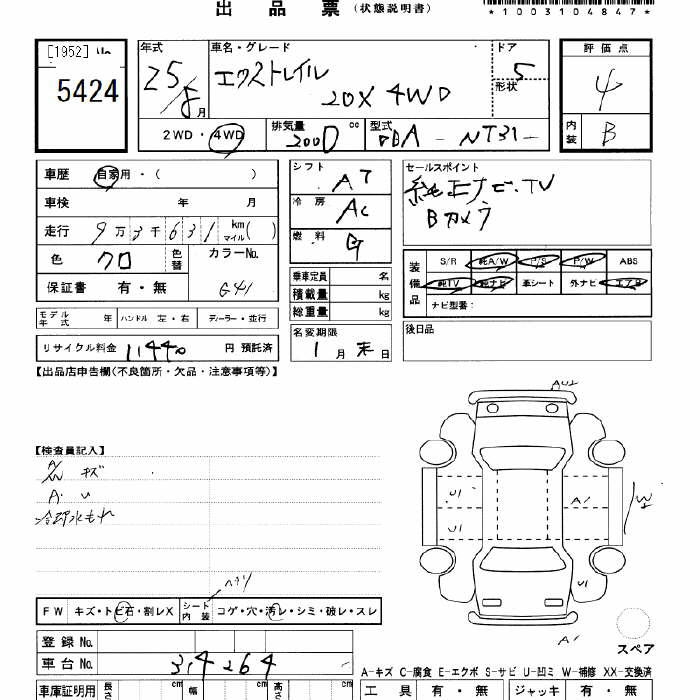 出品票(状態説明書)
*1003104847*
[1952]
5424
年式
25/8月
車名・グレード
エクストレイル
20X 4WD
ドア
5
形状
評価点
4
2WD・4WD
排気量 cc
2000
型式
DBA - NT31 -
内装
B
車歴 自家用・( )
車検 年 月
走行 9万3千631 km マイル( )
色 クロ 色替 カラーNo.
G41
保証書 有・無
シフト
AT
冷房
AC
燃料
G
セールスポイント
純正ナビ・TV
Bカメラ
装備品
S/R 純A/W P/S P/W ABS
純TV 純ナビ 革シート 外ナビ エアB
ナビ型番:
乗車定員 名
積載量 kg
総重量 kg
モデル年式 年 ハンドル 左・右 ディーラー・並行
名変期限
1月末日
後日品
リサイクル料金 11440 円 預託済
【出品店申告欄(不良箇所・欠品・注意事項等)】
【検査員記入】
キズ
A・U
冷却水もれ
AU2
U1
U1
A1
W2
U1
A1
FW キズ・トビ石・割レX シート内装 コゲ・穴・汚レ・シミ・破レ・スレ
登録No.
車台No. 314264
スペア
A-キズ C-腐食 E-エクボ S-サビ U-凹ミ W-補修 XX-交換済
車庫証明用 長さ cm 幅 cm 高さ cm
工具 有・無 ジャッキ 有・無